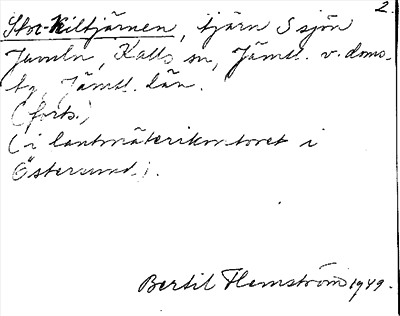 2.
Stor-Kiltjärnen, tjärn S sjön
Juveln, Kalls sn, Jämtl. v. doms.
tg, Jämtl. län.
(forts.)
(i lantmäterikontoret i
Östersund.).
Bertil Flemström 1949.